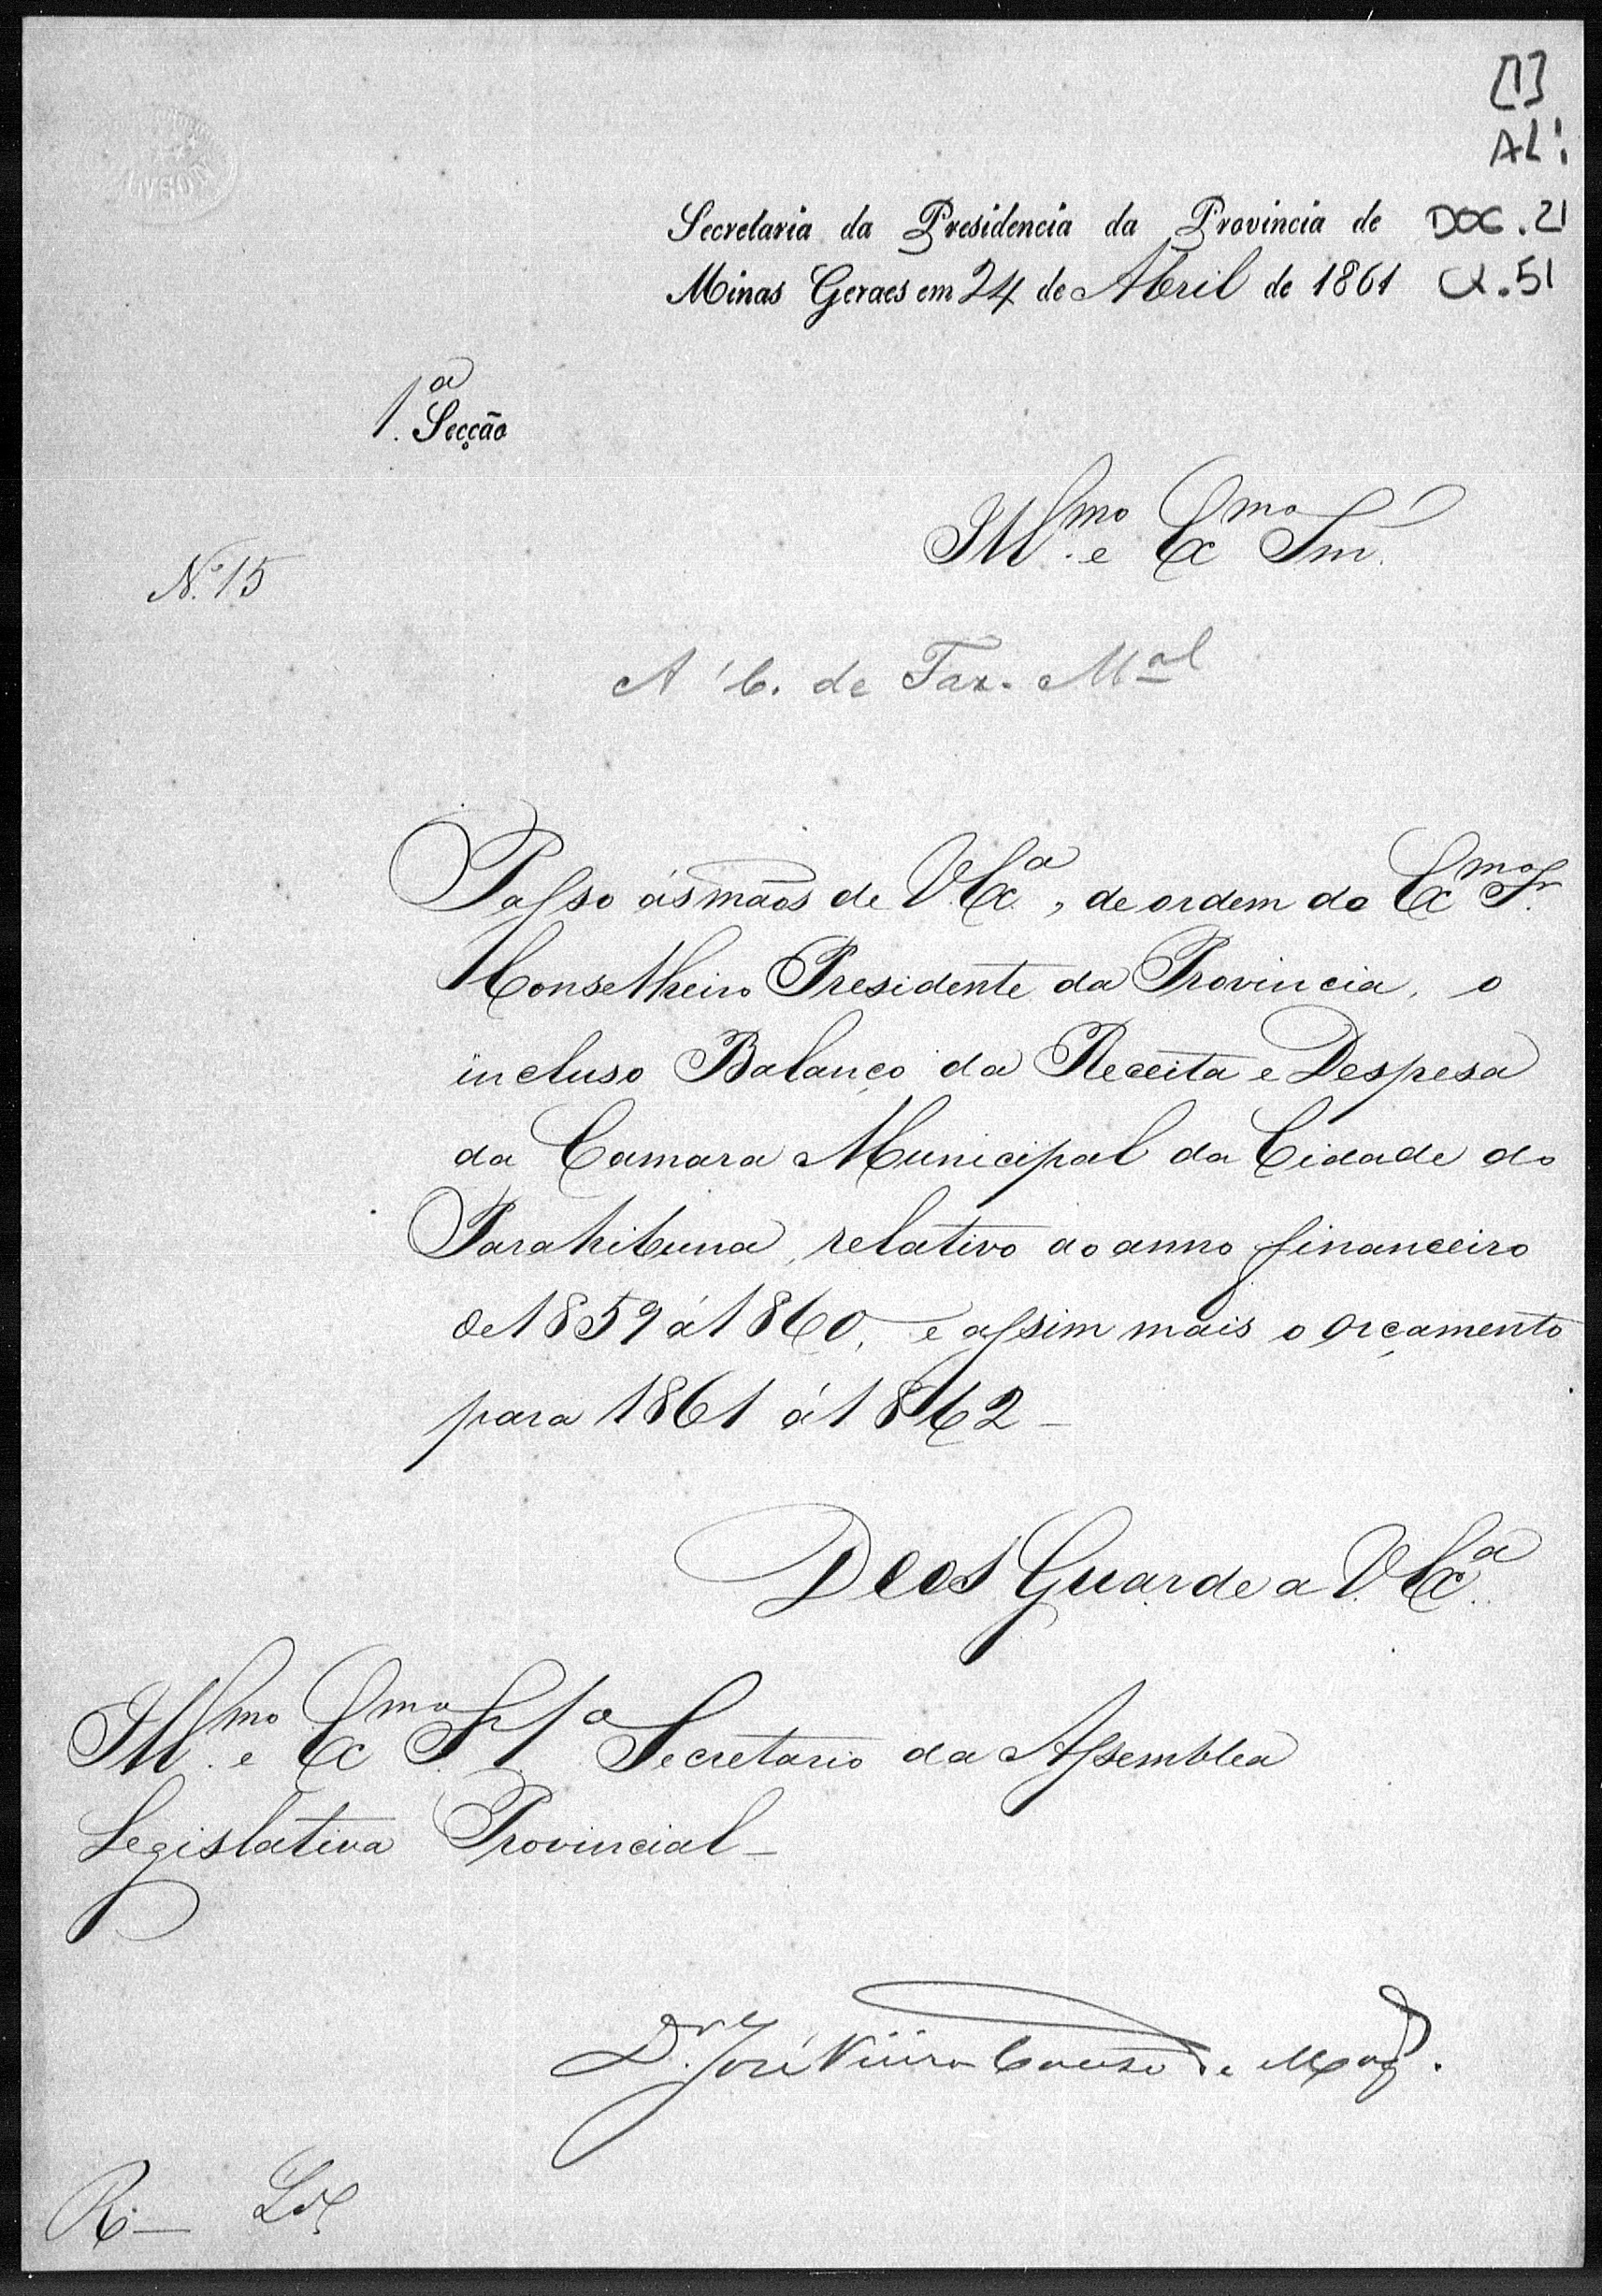 [1]
AL!
Secretaria da Presidencia da Provincia de DOC. 21
Minas Geraes em 24 de Abril de 1861 CX. 51
1.ª Secção
Ill.mo e Ex.mo Snr.
N.º 15
A' C. de Faz. Mal
Passo ás mãos de V. Ex.ª, de ordem do Ex.mo Sr.
Conselheiro Presidente da Provincia, o
incluso Balanço da Receita e Despesa
da Camara Municipal da Cidade do
Parahibuna, relativo ao anno financeiro
de 1859 á 1860, e assim mais o orçamento
para 1861 á 1862 –
Deos Guarde a V. Ex.ª
Ill.mo e Ex.mo Sr. 1.º Secretario da Assemblea
Legislativa Provincial –
D.r José Vieira Couto de Mag.